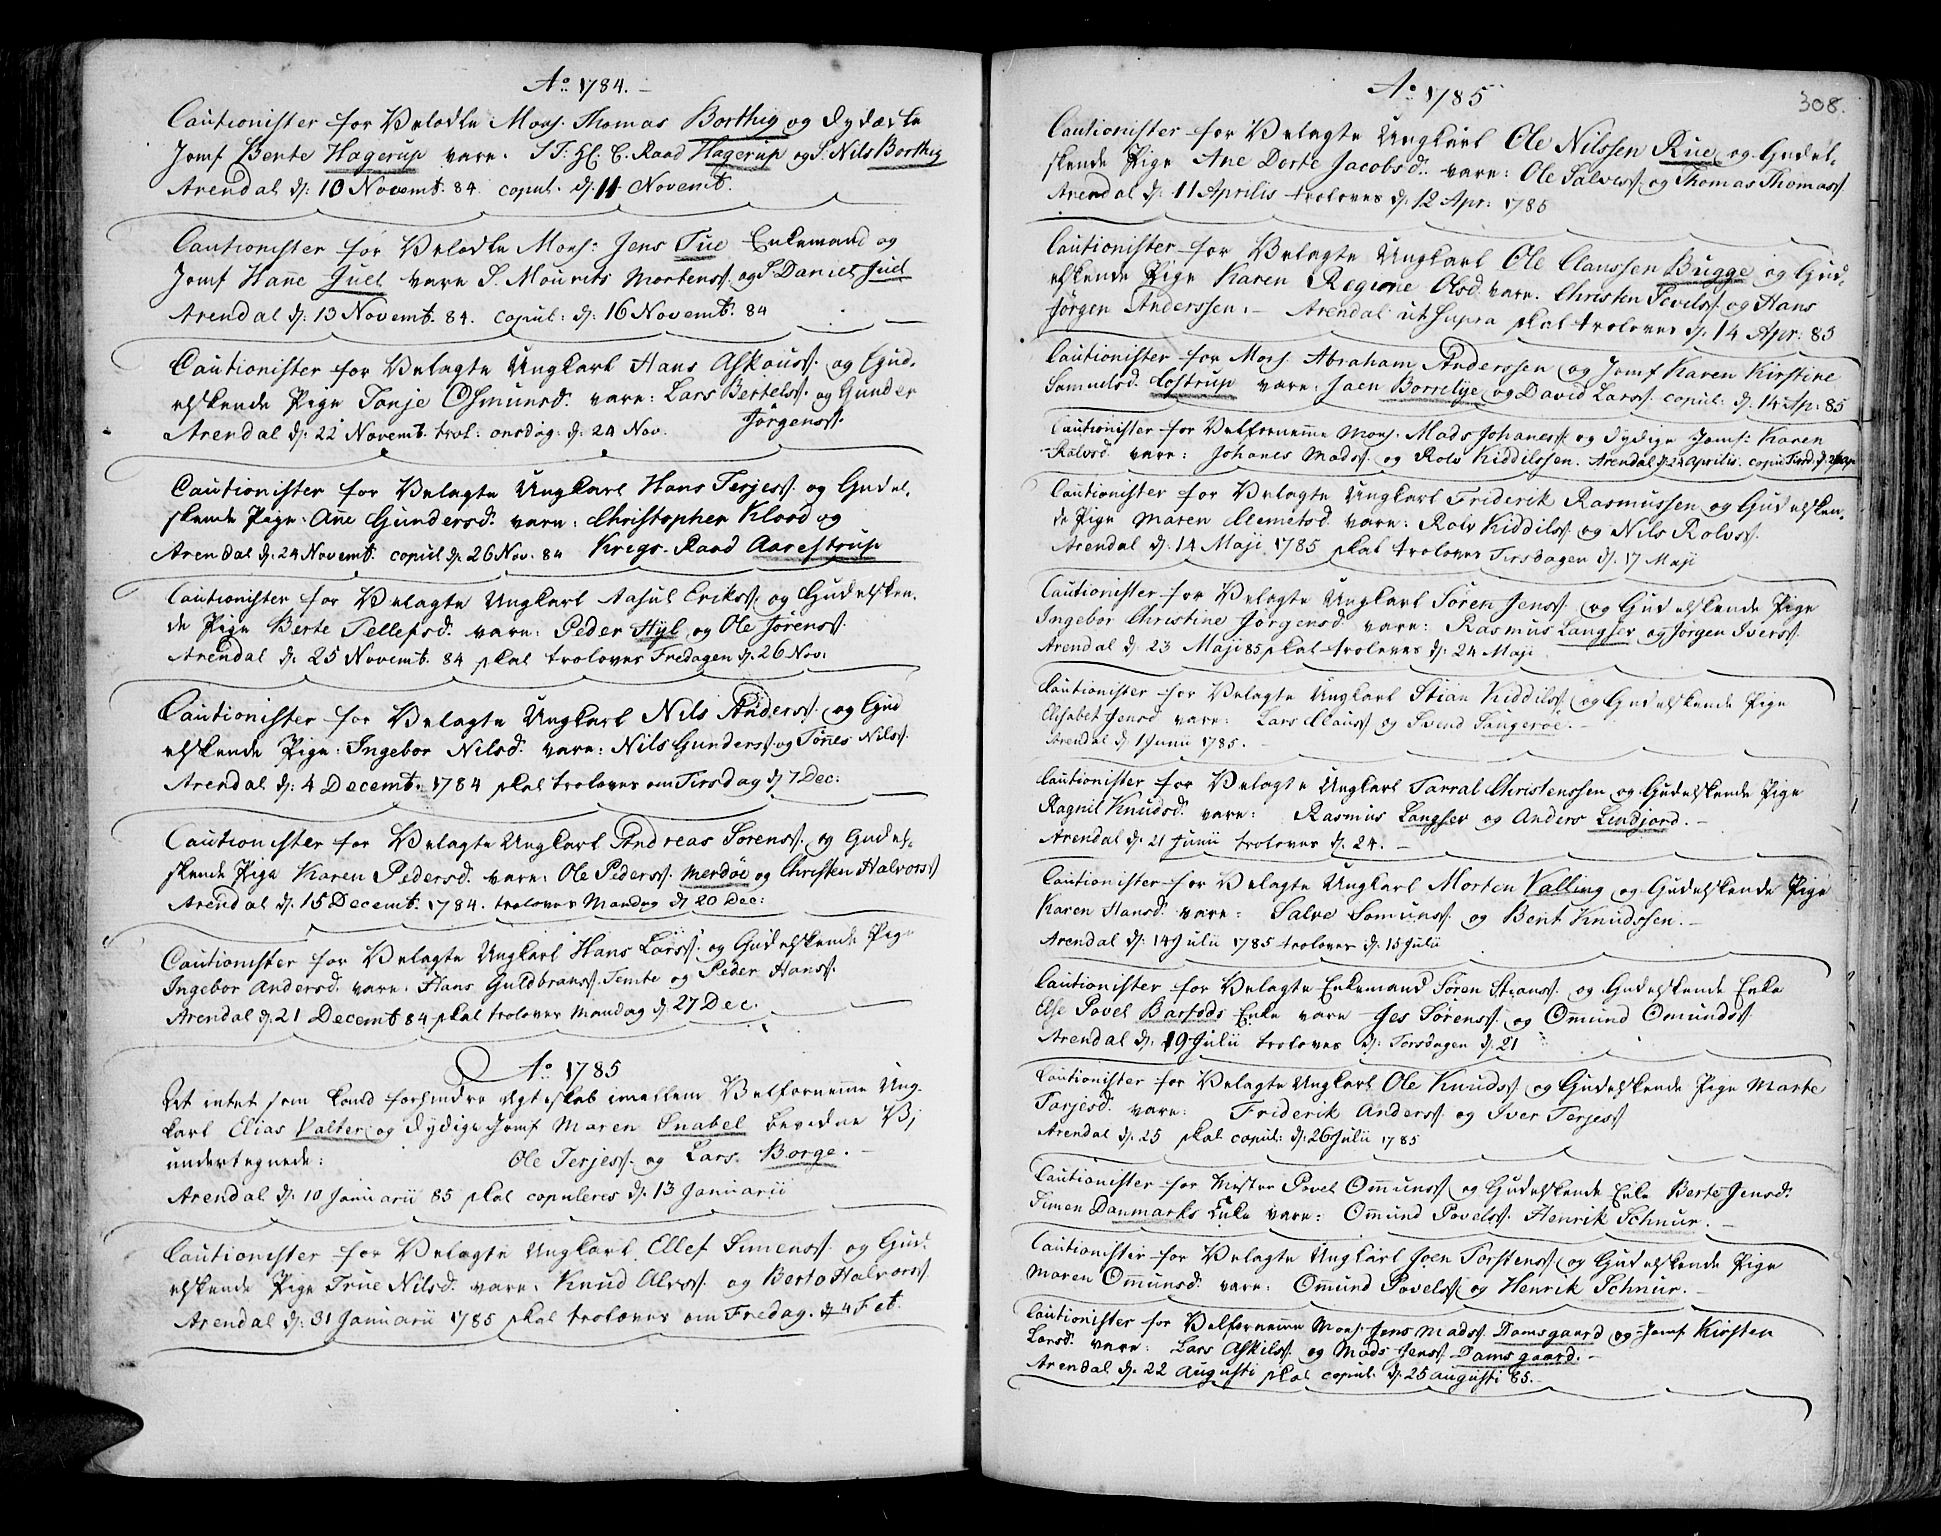 Ao 1784.
Cautionister for Velædle Mons. Thomas Borthig og Dydædle
Jomf Bente Hagerup vare. S.T. Hl: C. Raad Hagerup og S. Nils Borthig
Arendal d: 10 Novemt. 84. copul. d: 11 Novemt.
Cautionister for Velædle Mons: Jens Tue Enkemand og
Jomf Hane Juel vare S. Mourits Mortenss. og S. Daniel Juel
Arendal d: 13 Novemt. 84. copul: d: 16 Novemt. 84
Cautionister for Velagte Ungkarl Hans Askouss. og Gud-
elskende Pige Tonje Osmunsd. vare: Lars Bertelss. og Gunder
Jørgenss.
Arendal d: 22 Novemt. trol: onsdag d: 24 Nov.
Cautionister for Velagte Ungkarl Hans Terjess. og Gudel-
skende Pige: Ane Gundersd. vare: Christopher Klood og
Arendal d: 24 Novemt. copul d: 26 Nov. 84 Kregs-Raad Aarestrup
Cautionister for Velagte Ungkarl Aasul Erikss. og Gudelsken-
de Pige Berte Tellefsd. vare: Peder Hyl og Ole Sørenss.
Arendal d: 25 Novemt. 84 skal troloves Fredagen d: 26 Nov:
Cautionister for Velagte Ungkarl Nils Anderss. og Gud
elskende Pige: Ingebor Nilsd. vare: Nils Gunderss. og Tønes Nilss.
Arendal d: 4 Decemt. 1784 skal troloves om Tirsdag d 7 Dec:
Cautionister for Velagte Ungkarl Andreas Sørenss. og Gudel-
skende Pige Karen Pedersd. vare: Ole Pederss. Merdöe og Christen Halvorss.
Arendal d: 15 Decemt. 1784. troloves Mandag d 20 Dec:
Cautionister for Velagte Ungkarl Hans Larss. og Gudelskende Pige
Ingebor Andersd. vare. Hans Guldbranss. Temte og Peder Hanss.
Arendal d. 21 Decemt 84 skal troloves Mandag d 27 Dec.
Ao 1785
At intet som kand forhindre egteskab imellem Velfornemme Ung-
karl Elias Valter og Dydige Jomf Maren Snabel bevidne Vi
undertegnede: Ole Terjess. og Lars Borge.
Arendal d: 10 Januarii 85 skal copuleres d: 13 Januarii
Cautionister for Velagte Ungkarl Ellef Simenss. og Gud-
elskende Pige True Nilsd. vare. Knud Alvss. og Berto Halvorss.
Arendal d: 31 Januarii 1785 skal troloves om Fredag. d 4 Feb.
Ao 1785
308.
Cautionister for Velagte Ungkarl Ole Nilssen Rue og Gudel-
skende Pige Ane Dorte Jacobsd. vare: Ole Salvess. og Thomas Thomass.
Arendal d: 11 Aprilis troloves d: 12 Apr: 1785
Cautionister for Velagte Ungkarl Ole Claussen Bugge og Gud-
elskende Pige Karen Regine Olsd. vare. Christen Povelss. og Hans
Jørgen Anderssen. Arendal ut Supra skal troloves d: 14 Apr: 85
Cautionister for Mons. Abraham Anderssen og Jomf Karen Kirstine
Samuelsd. Costrup vare: Jaen Borrelye og David Larss. copul: d: 14 Ap: 85
Cautionister for Velfornemme Mons. Mads Johaness. og Dydige Jomf: Karen
Rolvsd. vare: Johanes Madss. og Rolv Kiddilssen. Arendal d: 24 Aprilis. copul Tirsd. d. 26 Apr
Cautionister for Velagte Ungkarl Friderik Rasmussen og Gudelsken-
de Pige Maren Clemetsd. vare: Rolv Kiddilss. og Nils Rolvss.
Arendal d: 14 Maji 1785 skal troloves Tirsdagen d: 17 Maji
Cautionister for Velagte Ungkarl Søren Jenss. og Gudelskende Pige
Ingebor Christine Jørgensd. vare: Rasmus Langsev og Jørgen Iverss.
Arendal d: 23 Maji 85 skal troloves d: 24 Maji
Cautionister for Velagte Ungkarl Stian Kiddilss. og Gudelskende Pige
Elisabet Jensd vare: Lars Clauss. og Svend Saugeröe.
Arendal d: 1 Junii 1785.
Cautionister for Velagte Ungkarl Tarral Christenssen og Gudelskende Pige
Ragnil Knudsd. vare: Rasmus Langsev og Anders Lindjord.
Arendal d: 21 Junii troloves d: 24.
Cautionister for Velagte Ungkarl Morten Valling og Gudelskende Pige
Karen Hansd. vare: Salve Somunss. og Bent Knudssen.
Arendal d: 14 Julii 1785 troloves d: 15 Julii
Cautionister for Velagte Enkemand Søren Stianss. og Gudelskende Enke
Else Povel Basteds Enke vare Jes Sørenss. og Omund Omundss.
Arendal d: 19 Julii troloves d: Torsdagen d: 21
Cautionister for Velagte Ungkarl Ole Knudss. og Gudelskende Pige Marte
Tarjesd. vare: Friderik Anderss. og Iver Terjess
Arendal d: 25 skal copul: d: 26 Julii 1785
Cautionister for Mester Povel Omunss. og Gudelskende Enke Berte Jensd.
Simen Danmarks Enke vare: Omund Povelss. Henrik Schnur.
Cautionister for Velagte Ungkarl Joen Torstenss. og Gudelskende Pige
Maren Omunsd. vare: Omund Povelss. og Henrik Schnur.
Cautionister for Velfornemme Mons. Jens Madss. Damsgaard og Jomf Kirsten
Larsd. vare: Lars Askilss. og Mads Jenss. Damsgaard.
Arendal d: 22 Augusti skal copul. d: 25 Augusti 85.